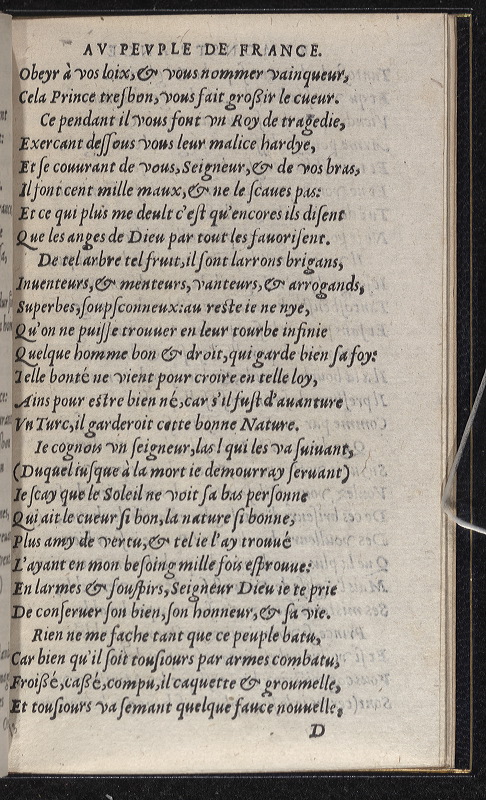 AV PEVPLE DE FRANCE.
Obeyr à vos loix, & vous nommer vainqueur,
Cela Prince tresbon, vous fait großir le cueur.
Ce pendant il vous font vn Roy de tragedie,
Exercant dessous vous leur malice hardye,
Et se couurant de vous, Seigneur, & de vos bras,
Il font cent mille maux, & ne le scaues pas:
Et ce qui plus me deult c'est qu'encores ils disent
Que les anges de Dieu par tout les fauorisent.
De tel arbre tel fruit, il sont larrons brigans,
Inuenteurs, & menteurs, vanteurs, & arrogands,
Superbes, soupsconneux: au reste ie ne nye,
Qu'on ne puisse trouuer en leur tourbe infinie
Quelque homme bon & droit, qui garde bien sa foy:
Telle bonté ne vient pour croire en telle loy,
Ains pour estre bien né, car s'il fust d'auanture
Vn Turc, il garderoit cette bonne Nature.
Ie cognois vn seigneur, las! qui les va suiuant,
(Duquel iusque à la mort ie demourray seruant)
Ie scay que le Soleil ne voit ça bas personne
Qui ait le cueur si bon, la nature si bonne,
Plus amy de vertu, & tel ie l'ay trouué
L'ayant en mon besoing mille fois esprouué:
En larmes & souspirs, Seigneur Dieu ie te prie
De conseruer son bien, son honneur, & sa vie.
Rien ne me fache tant que ce peuple batu,
Car bien qu'il soit tousiours par armes combatu,
Froißé, caßé, compu, il caquette & groumelle,
Et tousiours va semant quelque fauce nouuelle,
D